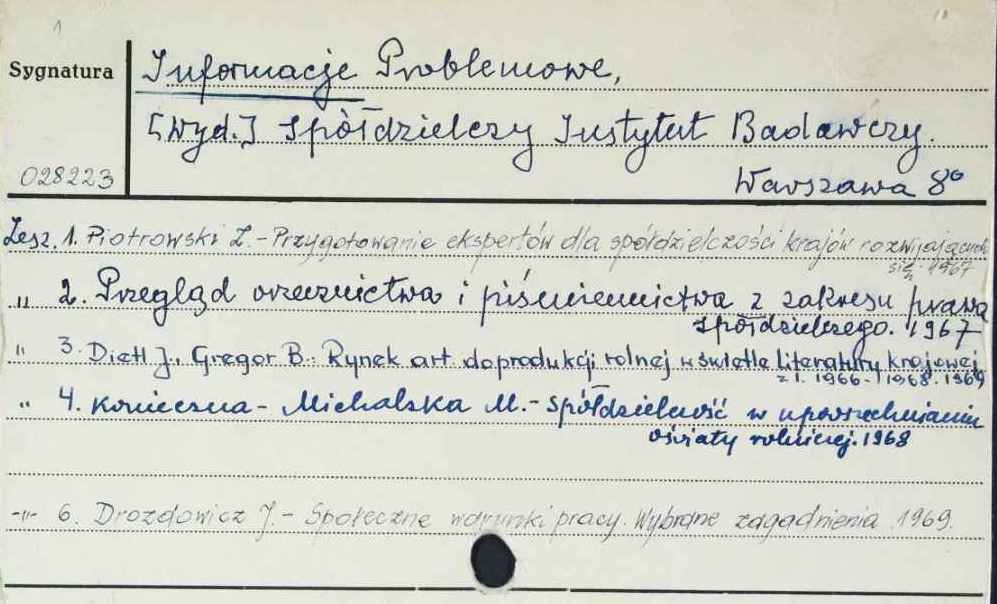 1
10
Sygnatura
Informacje Problemowe,
[Wyd.] Spółdzielczy Instytut Badawczy.
028223
Warszawa 8°
Zesz. 1. Piotrowski Z. - Przygotowanie ekspertów dla spółdzielczości krajów rozwijających
się. 1967
„ 2. Przegląd orzecznictwa i piśmiennictwa z zakresu prawa
spółdzielczego. 1967
„ 3. Dietl J., Gregor B.: Rynek art. do produkcji rolnej w świetle literatury krajowej
z l. 1966-1968. 1969
„ 4. Konieczna - Michalska M. - Spółdzielczość w upowszechnianiu
oświaty rolniczej. 1968
-„- 6. Drozdowicz J. - Społeczne warunki pracy. Wybrane zagadnienia. 1969.